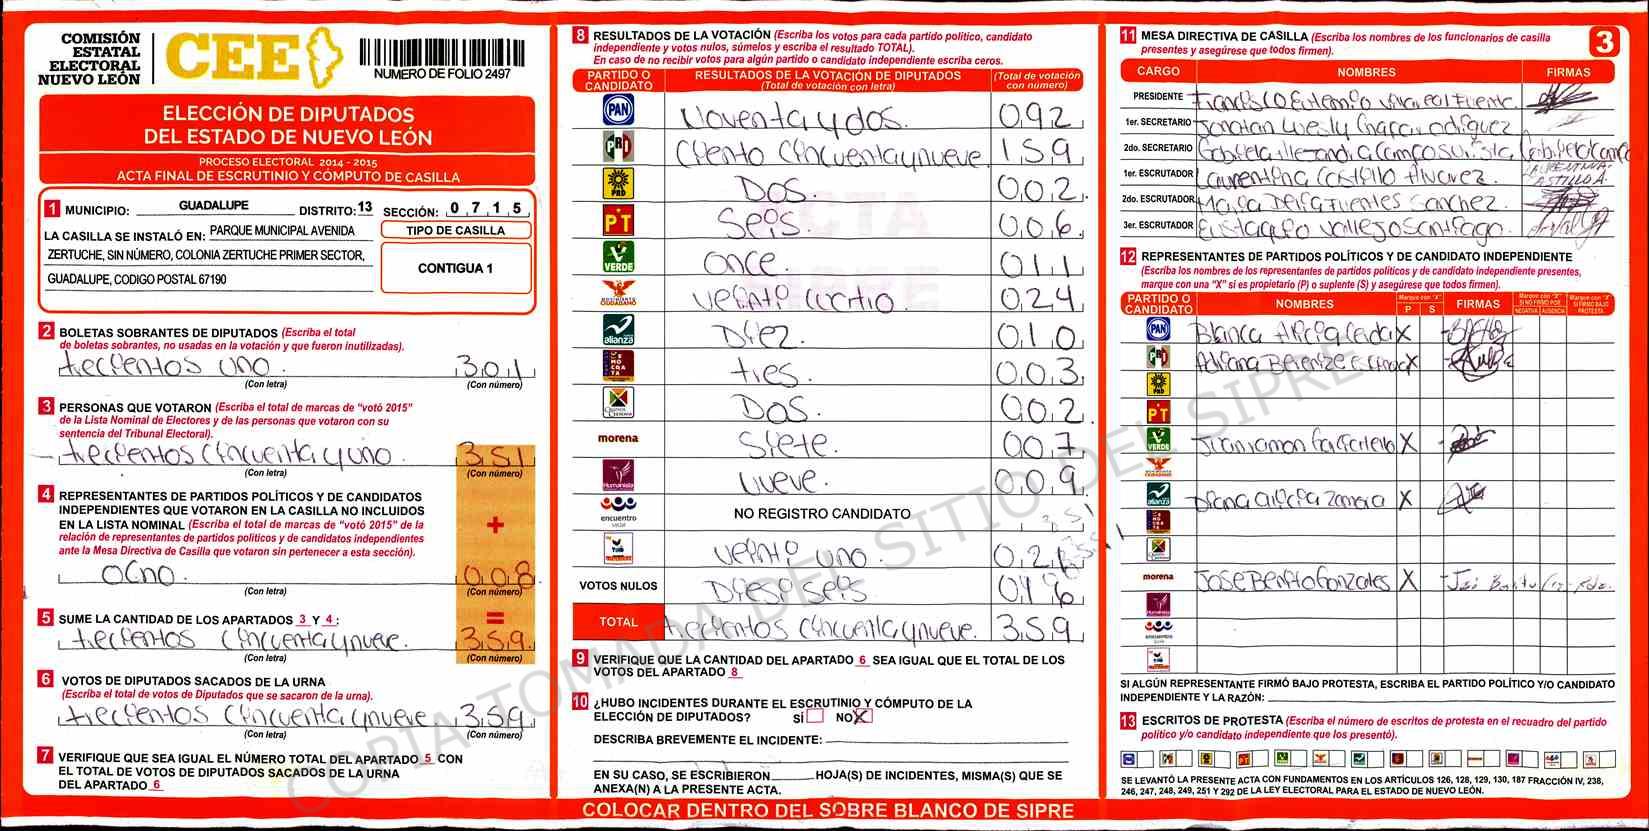 COMISIÓN
ESTATAL
ELECTORAL
NUEVO LEÓN
CEE
NUMERO DE FOLIO 2497
ELECCIÓN DE DIPUTADOS
DEL ESTADO DE NUEVO LEÓN
PROCESO ELECTORAL 2014 - 2015
ACTA FINAL DE ESCRUTINIO Y CÓMPUTO DE CASILLA
1 MUNICIPIO: GUADALUPE DISTRITO: 13 SECCIÓN: 0 7 1 5
LA CASILLA SE INSTALÓ EN: PARQUE MUNICIPAL AVENIDA
ZERTUCHE, SIN NÚMERO, COLONIA ZERTUCHE PRIMER SECTOR,
GUADALUPE, CODIGO POSTAL 67190
TIPO DE CASILLA
CONTIGUA 1
2 BOLETAS SOBRANTES DE DIPUTADOS (Escriba el total
de boletas sobrantes, no usadas en la votación y que fueron inutilizadas).
trecientos uno 301
(Con letra) (Con número)
3 PERSONAS QUE VOTARON (Escriba el total de marcas de "votó 2015"
de la Lista Nominal de Electores y de las personas que votaron con su
sentencia del Tribunal Electoral).
trecientos cincuenta y uno 351
(Con letra) (Con número)
4 REPRESENTANTES DE PARTIDOS POLÍTICOS Y DE CANDIDATOS
INDEPENDIENTES QUE VOTARON EN LA CASILLA NO INCLUIDOS
EN LA LISTA NOMINAL (Escriba el total de marcas de "votó 2015" de la
relación de representantes de partidos politicos y de candidatos independientes
ante la Mesa Directiva de Casilla que votaron sin pertenecer a esta sección).
+
ocho 008
(Con letra) (Con número)
5 SUME LA CANTIDAD DE LOS APARTADOS 3 Y 4:
=
trecientos cincuenta y nueve. 359
(Con letra) (Con número)
6 VOTOS DE DIPUTADOS SACADOS DE LA URNA
(Escriba el total de votos de Diputados que se sacaron de la urna).
trecientos cincuenta y nueve 359
(Con letra) (Con número)
7 VERIFIQUE QUE SEA IGUAL EL NÚMERO TOTAL DEL APARTADO 5 CON
EL TOTAL DE VOTOS DE DIPUTADOS SACADOS DE LA URNA
DEL APARTADO 6
8 RESULTADOS DE LA VOTACIÓN (Escriba los votos para cada partido político, candidato
independiente y votos nulos, súmelos y escriba el resultado TOTAL).
En caso de no recibir votos para algún partido o candidato independiente escriba ceros.
PARTIDO O CANDIDATO RESULTADOS DE LA VOTACIÓN DE DIPUTADOS (Total de votación con letra) (Total de votación con número)
PAN Noventa y dos. 092
PRI Ciento cincuenta y nueve 159
PRD Dos. 002
PT Seis. 006
VERDE once. 011
MOVIMIENTO CIUDADANO veinti cuatro 024
alianza Diez. 010
DEMOCRATA tres. 003
Dos. 002
morena Siete. 007
Humanista nueve. 009
encuentro social NO REGISTRO CANDIDATO
veinti uno 021
VOTOS NULOS Diesi seis 016
TOTAL trecientos cincuenta y nueve. 359
9 VERIFIQUE QUE LA CANTIDAD DEL APARTADO 6 SEA IGUAL QUE EL TOTAL DE LOS
VOTOS DEL APARTADO 8
10 ¿HUBO INCIDENTES DURANTE EL ESCRUTINIO Y CÓMPUTO DE LA
ELECCIÓN DE DIPUTADOS? SÍ NO X
DESCRIBA BREVEMENTE EL INCIDENTE:
EN SU CASO, SE ESCRIBIERON HOJA(S) DE INCIDENTES, MISMA(S) QUE SE
ANEXA(N) A LA PRESENTE ACTA.
COLOCAR DENTRO DEL SOBRE BLANCO DE SIPRE
11 MESA DIRECTIVA DE CASILLA (Escriba los nombres de los funcionarios de casilla
presentes y asegúrese que todos firmen).
3
CARGO NOMBRES FIRMAS
PRESIDENTE
1er. SECRETARIO Jonatan Wesly
2do. SECRETARIO
1er. ESCRUTADOR Laurentina Castillo Alvarez.
2do. ESCRUTADOR Maria Delfa Fuentes Sanchez.
3er. ESCRUTADOR Eustaquio Vallejo Santiago.
12 REPRESENTANTES DE PARTIDOS POLÍTICOS Y DE CANDIDATO INDEPENDIENTE
(Escriba los nombres de los representantes de partidos políticos y de candidato independiente presentes,
marque con una "X" si es propietario (P) o suplente (S) y asegúrese que todos firmen).
PARTIDO O CANDIDATO NOMBRES Marque con "X" P S FIRMAS Marque con "X" SI NO FIRMÓ POR NEGATIVA AUSENCIA Marque con "X" SI FIRMÓ BAJO PROTESTA
PAN Blanca Alicia X
PRI Adriana X
PRD
PT
VERDE Juan ramon X
alianza Diana alicia zamora X
morena Jose Benito Gonzales X
SI ALGÚN REPRESENTANTE FIRMÓ BAJO PROTESTA, ESCRIBA EL PARTIDO POLÍTICO Y/O CANDIDATO
INDEPENDIENTE Y LA RAZÓN:
13 ESCRITOS DE PROTESTA (Escriba el número de escritos de protesta en el recuadro del partido
político y/o candidato independiente que los presentó).
SE LEVANTÓ LA PRESENTE ACTA CON FUNDAMENTOS EN LOS ARTÍCULOS 126, 128, 129, 130, 187 FRACCIÓN IV, 238,
246, 247, 248, 249, 251 Y 292 DE LA LEY ELECTORAL PARA EL ESTADO DE NUEVO LEÓN.
COPIA TOMADA DEL SITIO DEL SIPRE